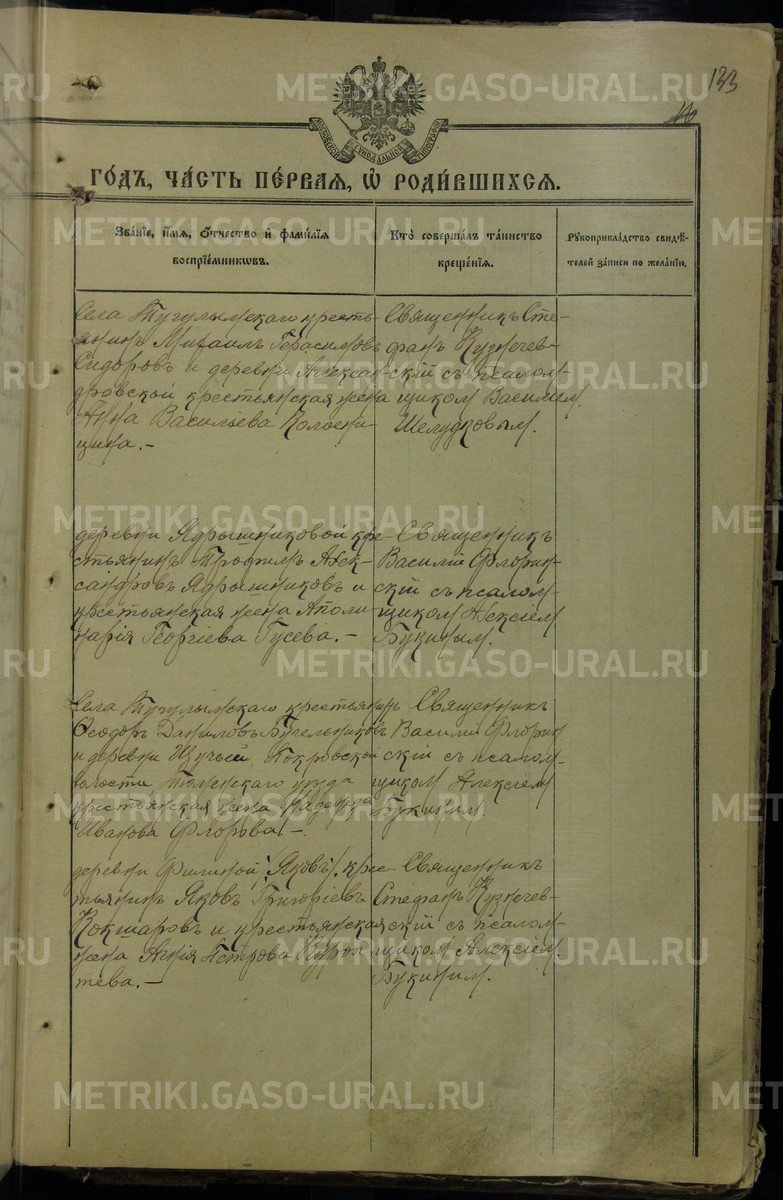 133
МОСКОВСКОЙ СѴНОДАЛЬНОЙ ТИПОГРАФІИ
ГО́ДЪ, ЧА́СТЬ ПЕ́РВАЯ, Ѡ҆ РОДИ́ВШИХСЯ.
Зва́нїе, и҆́мя, ѻ҆́тчество и҆ фами́лїя воспрїе́мниковъ.
Кто̀ соверша́лъ та́инство креще́нїя.
Рꙋкоприкла́дство свидѣ́телей за́писи по жела́нїю.
Села Тугулымскаго кресть-
янинъ Михаилъ Герасимовъ
Сидоровъ и деревни Алексан-
дровской крестьянская жена
Анна Васильева
Священникъ Сте-
фанъ Кузнечев-
скій съ псалом-
щиком Василием
Шелудковым.
деревни Ядрышниковой кре-
стьянинъ Трофимъ Алек-
сандровъ Ядрышниковъ и
крестьянская жена Аполи-
нарія Георгіева Гусева. –
Священникъ
Василій Флорин-
скій съ псалом-
щиком Алексіем
Букиным.
Села Тугулымскаго крестьянинъ
Ѳеодоръ Даниловъ
и деревни Щучьей, Покровской
волости Тюменскаго уезда
крестьянская жена Надежда
Иванова Флорова. –
Священникъ
Василій Флорин
скій съ псалом-
щиком Алексіем
Букиным.
деревни Филиной /Яковъ/ крес-
тьянинъ Яковъ Григоріевъ
Кокшаровъ и крестьянская
жена Петрова Куроп-
тева. –
Священникъ
Стефанъ Кузнечев-
скій съ псалом-
щиком Алексіем
Букиным.
METRIKI.GASO-URAL.RU